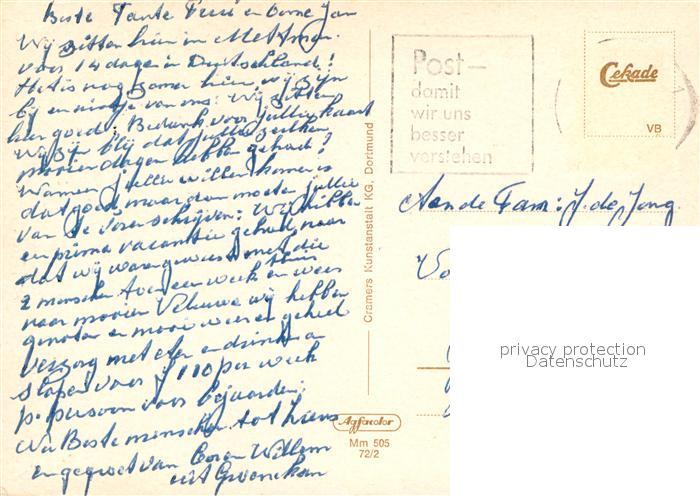 Beste Tante Fem en oome Jan
Wij zitten hier in Mettman.
voor 14 dage in Duitschland!
Het is nog zomer hier wij zijn
bij en nichje van ons: Wij zitten
hier goed. Bedank voor jullie kaart
Wij zijn blij dat jullie zulke
mooie dagen hebben gehad?
Wanneer jullie willen komen is
dat goed maar dan moeten jullie
van te voren schrijven: Wij hebben
en prima vacantie gehad naar
dat wij waren geweest met die
2 menschen A een week en weer
naar mooier Veluwe wij hebben
genoten en mooi weer en geheel
verzorg met eten en drinken
slapen voor f 110 per week
p. persoon voor bejaarden;
Wel Beste menschen tot hiers
en gegroet van Cor en Willem
uit Groenekan
Cramers Kunstanstalt KG, Dortmund
Agfacolor
Mm 505
72/2
Post—
damit
wir uns
besser
verstehen
Cekade
VB
Aan de Fam: J. de Jong.
privacy protection
Datenschutz